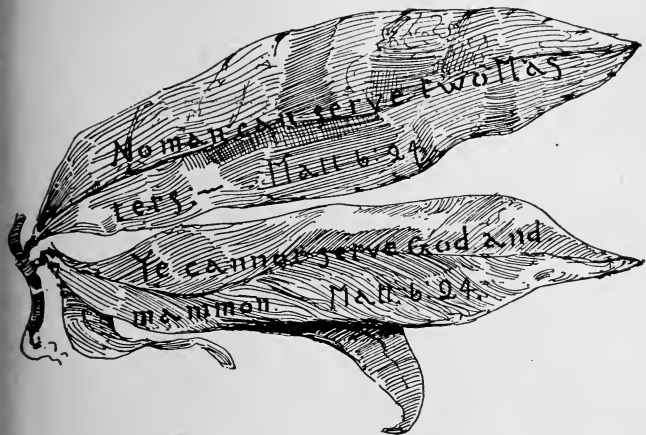 No man can serve two Mas
ters — Matt 6:24.
Ye cannot serve God and
mammon. Matt. 6:24.